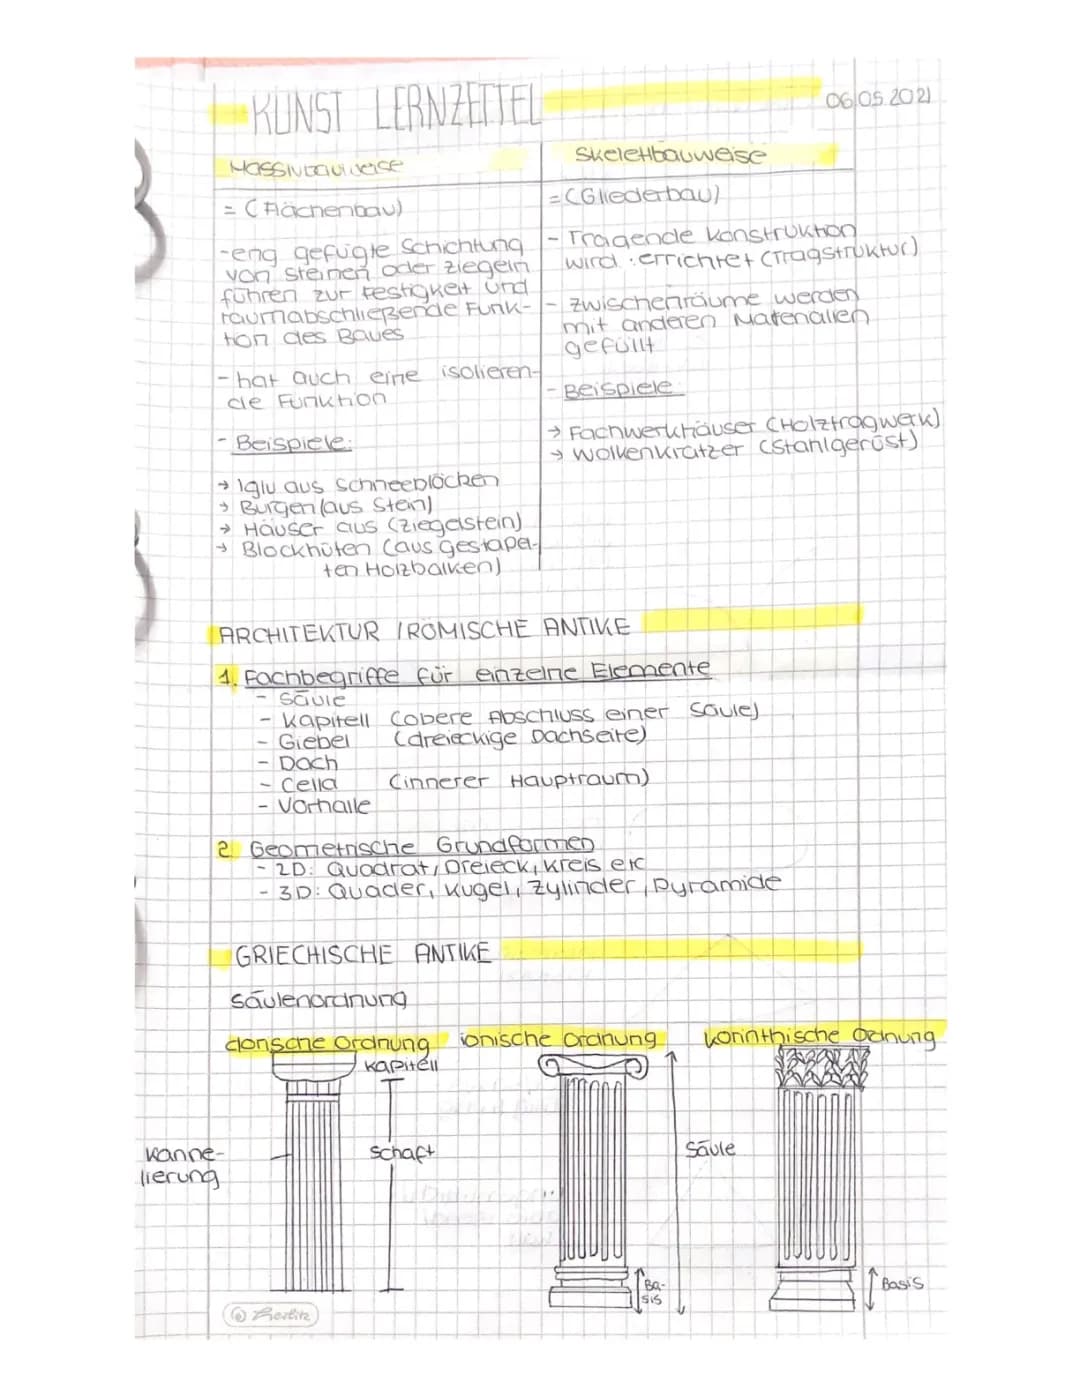 KUNST LERNZETTEL
06.05.2021
Massivbauweise
= (Flächenbau)
-eng gefügte Schichtung
von Steinen oder Ziegeln
führen zur Festigkeit und
raumabschließende Funk-
tion des Baues
- hat auch eine isolieren-
de Funktion
- Beispiele:
→ Iglu aus Schneeblöcken
→ Burgen (aus Stein)
→ Häuser aus (Ziegelstein)
→ Blockhüten (aus gestapel-
ten Holzbalken)
Skelettbauweise
= (Gliederbau)
- Tragende Konstruktion
wird errichtet (Tragstruktur)
- Zwischenräume werden
mit anderen Materialien
gefüllt
- Beispiele
→ Fachwerkhäuser (Holztragwerk)
→ Wolkenkratzer (Stahlgerüst)
ARCHITEKTUR / RÖMISCHE ANTIKE
1. Fachbegriffe für einzelne Elemente
- Säule
- Kapitell (obere Abschluss einer Säule)
- Giebel (dreieckige Dachseite)
- Dach
- Cella (innerer Hauptraum)
- Vorhalle
2. Geometrische Grundformen
- 2D: Quadrat, Dreieck, Kreis etc
- 3D: Quader, Kugel, Zylinder, Pyramide
GRIECHISCHE ANTIKE
Säulenordnung
dorische Ordnung ionische Ordnung korinthische Ordnung
Kapitell
Kanne-
lierung
Schaft
Säule
Ba-
sis
Basis
Herlitz